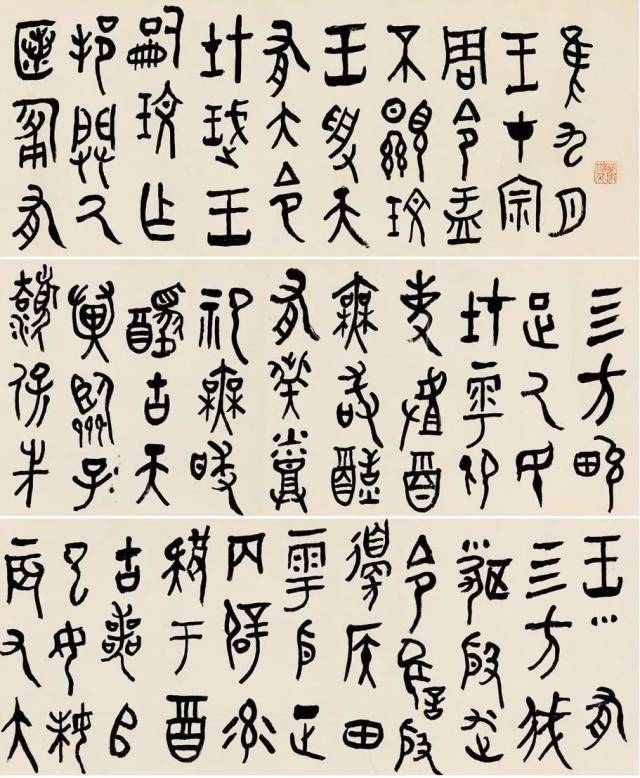 隹九月
王才宗
周令盂
不顯玟
王受天
有大令
在珷王
嗣玟乍
邦闢氒
匿匍有
亖方畯
正氒民
在雩御
事䖒酉
無敢酖
有柴烝
祀無敢
醻古天
異臨子
灋保先
王有
亖方我
聞殷述
令隹殷
邊侯田
雩殷正
百辟率
肄于酉
古喪𠂤
已女妹
辰又大